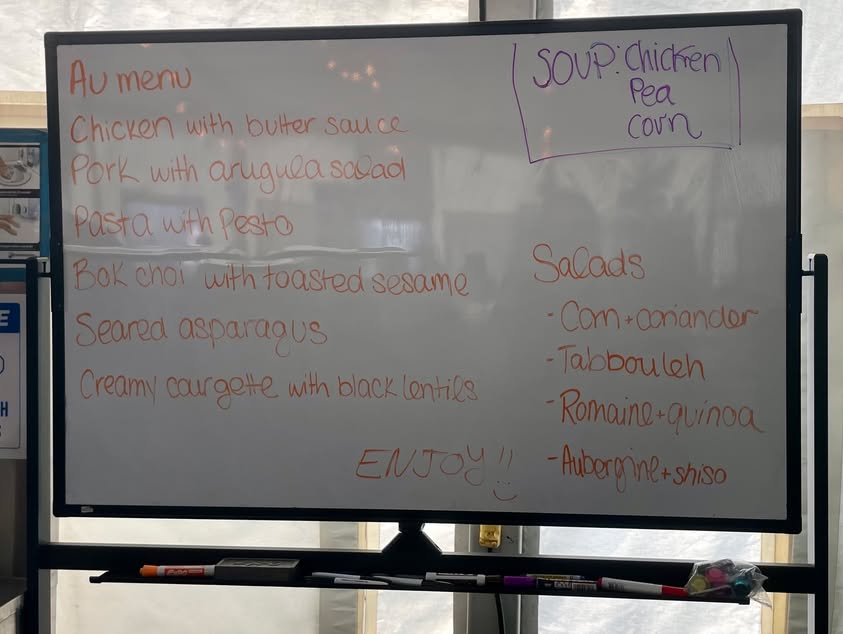 Au menu
Chicken with butter sauce
Pork with arugula salad
Pasta with Pesto
Bok choi with toasted sesame
Seared asparagus
Creamy courgette with black lentils
ENJOY!!
SOUP: Chicken
Pea
corn
Salads
- Corn + coriander
- Tabbouleh
- Romaine + quinoa
- Aubergine + shiso
E
H